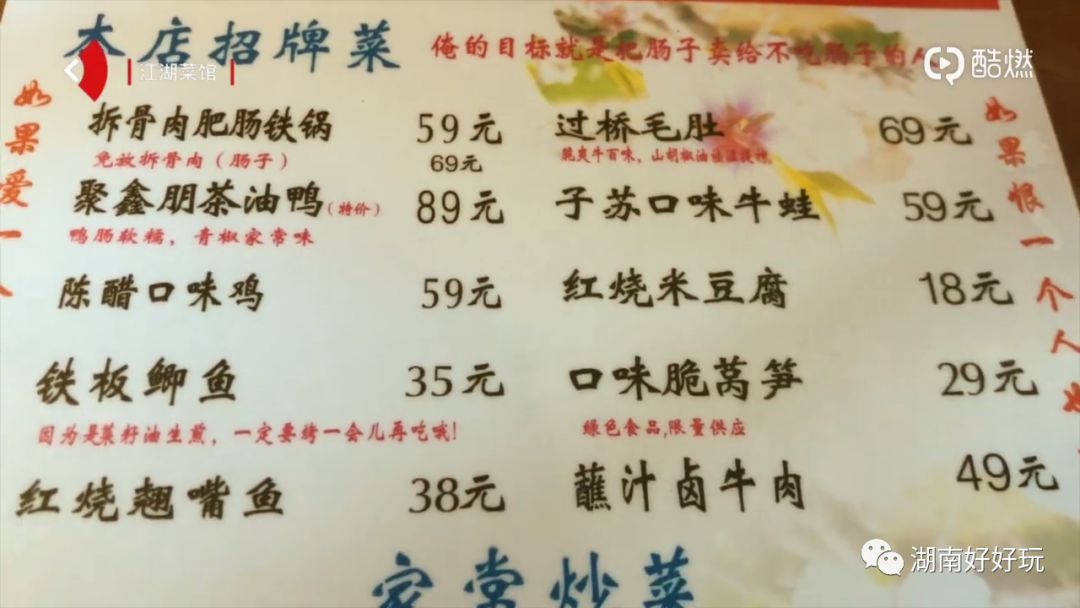 本店招牌菜
俺的目标就是把肠子卖给不吃肠子的人
江湖菜馆
酷燃
如果爱一人
如果恨一个人
拆骨肉肥肠铁锅 59元
免放拆骨肉（肠子） 69元
聚鑫朋茶油鸭（特价） 89元
鸭肠软糯，青椒家常味
陈醋口味鸡 59元
铁板鲫鱼 35元
因为是菜籽油生煎，一定要烤一会儿再吃哦!
红烧翘嘴鱼 38元
过桥毛肚 69元
脆爽牛百味，山胡椒油
子苏口味牛蛙 59元
红烧米豆腐 18元
口味脆莴笋 29元
绿色食品,限量供应
蘸汁卤牛肉 49元
家常炒菜
湖南好好玩